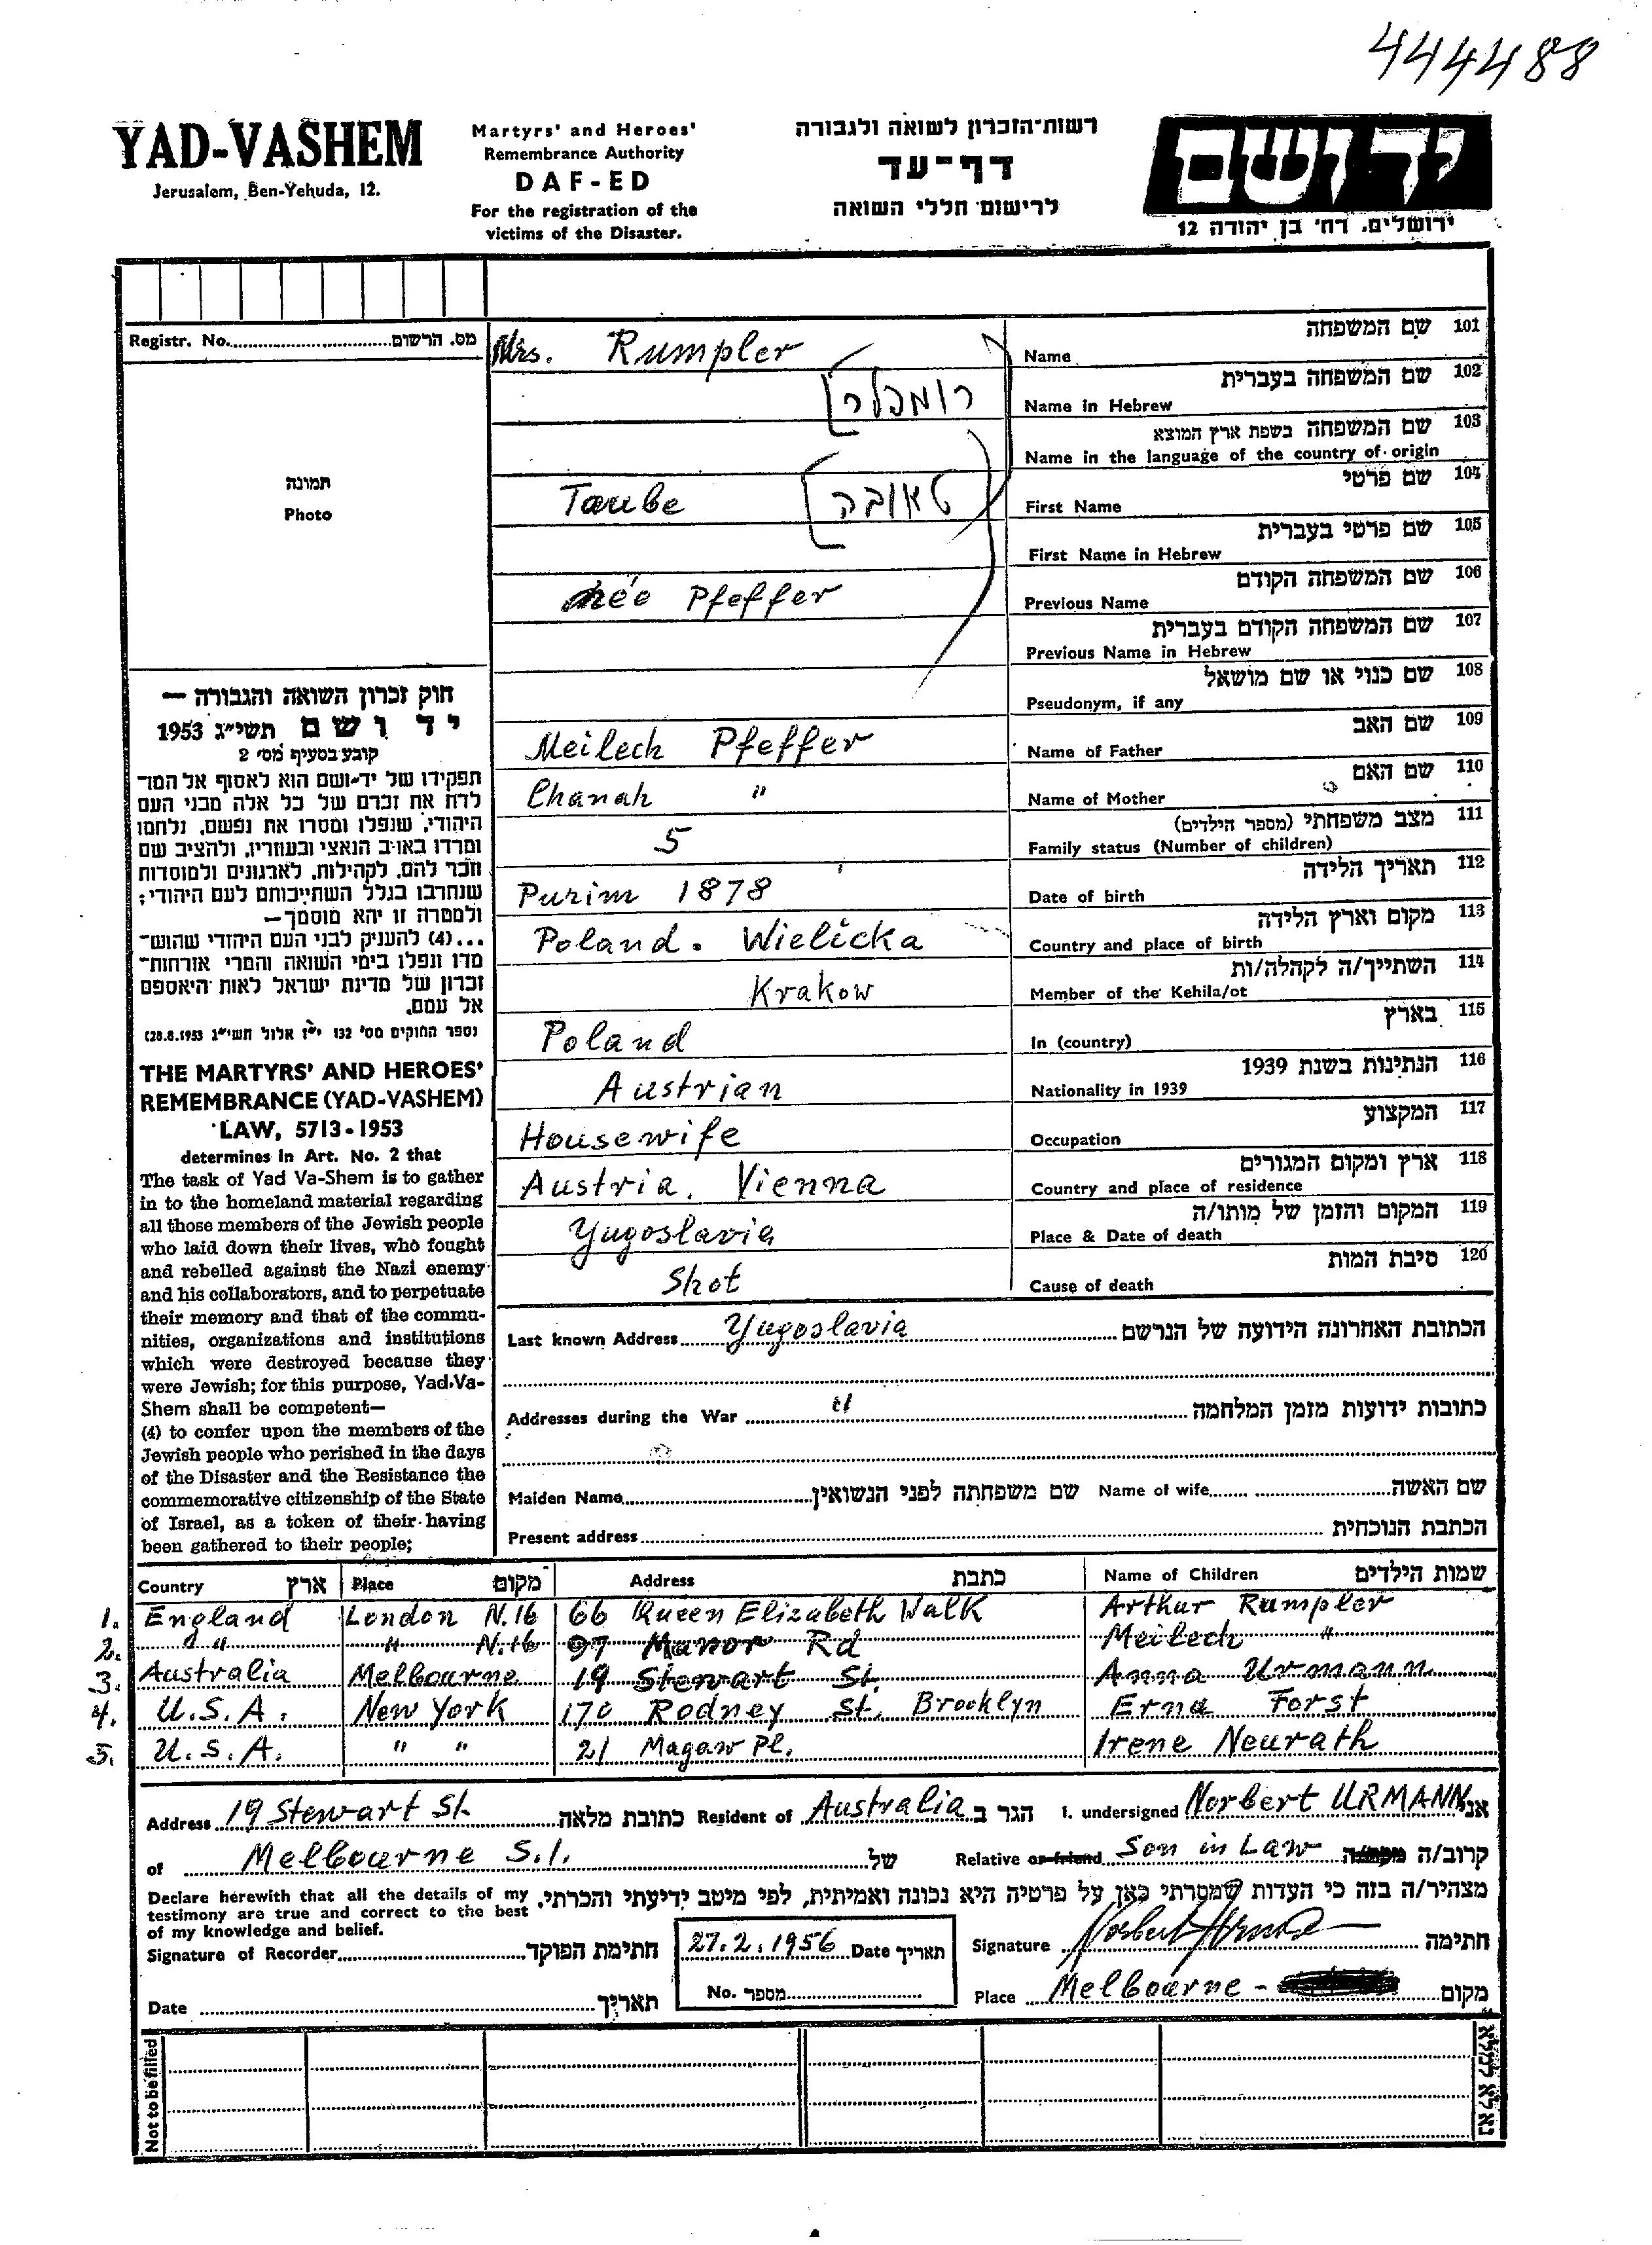 444488
YAD-VASHEM
Jerusalem, Ben-Yehuda, 12.
Martyrs' and Heroes'
Remembrance Authority
DAF-ED
For the registration of the
victims of the Disaster.
רשות-הזכרון לשואה ולגבורה
דף-עד
לרישום חללי השואה
ידושם
ירושלים, רח' בן יהודה 12
Registr. No. מס. הרשום
תמונה
Photo
Mrs. Rumpler
101 שם המשפחה
Name
רומפלר
102 שם המשפחה בעברית
Name in Hebrew
103 שם המשפחה בשפת ארץ המוצא
Name in the language of the country of origin
Taube טאובה
104 שם פרטי
First Name
105 שם פרטי בעברית
First Name in Hebrew
née Pfeffer
106 שם המשפחה הקודם
Previous Name
107 שם המשפחה הקודם בעברית
Previous Name in Hebrew
108 שם כנוי או שם מושאל
Pseudonym, if any
Meilech Pfeffer
109 שם האב
Name of Father
Chanah "
110 שם האם
Name of Mother
5
111 מצב משפחתי (מספר הילדים)
Family status (Number of children)
Purim 1878
112 תאריך הלידה
Date of birth
Poland. Wielička
113 מקום וארץ הלידה
Country and place of birth
Krakow
114 השתייך/ה לקהלה/ות
Member of the Kehila/ot
Poland
115 בארץ
In (country)
Austrian
116 הנתינות בשנת 1939
Nationality in 1939
Housewife
117 המקצוע
Occupation
Austria, Vienna
118 ארץ ומקום המגורים
Country and place of residence
Yugoslavia
119 המקום והזמן של מותו/ה
Place & Date of death
Shot
120 סיבת המות
Cause of death
חוק זכרון השואה והגבורה —
יד ושם תשי"ג 1953
קובע בסעיף מס' 2
תפקידו של יד-ושם הוא לאסוף אל המו־
לדת את זכרם של כל אלה מבני העם
היהודי, שנפלו ומסרו את נפשם, נלחמו
ומרדו באויב הנאצי ובעוזריו, ולהציב שם
וזכר להם, לקהילות, לארגונים ולמוסדות
שנחרבו בגלל השתייכותם לעם היהודי;
ולמטרה זו יהא מוסמך—
...(4) להעניק לבני העם היהודי שהוש־
מדו ונפלו בימי השואה והמרי אזרחות־
זכרון של מדינת ישראל לאות היאספם
אל עמם.
(ספר החוקים מס' 132 י"ז אלול תשי"ג 28.8.1953)
THE MARTYRS' AND HEROES'
REMEMBRANCE (YAD-VASHEM)
LAW, 5713-1953
determines in Art. No. 2 that
The task of Yad Va-Shem is to gather
in to the homeland material regarding
all those members of the Jewish people
who laid down their lives, who fought
and rebelled against the Nazi enemy
and his collaborators, and to perpetuate
their memory and that of the commu-
nities, organizations and institutions
which were destroyed because they
were Jewish; for this purpose, Yad-Va-
Shem shall be competent—
(4) to confer upon the members of the
Jewish people who perished in the days
of the Disaster and the Resistance the
commemorative citizenship of the State
of Israel, as a token of their having
been gathered to their people;
Last known Address Yugoslavia הכתובת האחרונה הידועה של הנרשם
Addresses during the War " כתובות ידועות מזמן המלחמה
Maiden Name שם משפחתה לפני הנשואין Name of wife שם האשה
Present address הכתבת הנוכחית
Country ארץ Place מקום Address כתבת Name of Children שמות הילדים
1. England London N.16 66 Queen Elizabeth Walk Arthur Rumpler
2. " " " N.16 97 Manor Rd Meilech "
3. Australia Melbourne 19 Stewart St. Anna Urmann
4. U.S.A. New York 170 Rodney St. Brooklyn Erna Forst
5. U.S.A. " " 21 Magaw Pl. Irene Neurath
Address 19 Stewart St. כתובת מלאה Resident of Australia הגר ב I. undersigned Norbert URMANN אני
of Melbourne S.1. של Relative or friend Son in Law קרוב/ה
Declare herewith that all the details of my
testimony are true and correct to the best
of my knowledge and belief.
מצהיר/ה בזה כי העדות שמסרתי כאן על פרטיה היא נכונה ואמיתית, לפי מיטב ידיעתי והכרתי.
Signature of Recorder חתימת הפוקד 27.2.1956 Date תאריך Signature Norbert Urmann חתימה
Date תאריך No. מספר Place Melbourne - מקום
Not to be filled
נא לא למלא